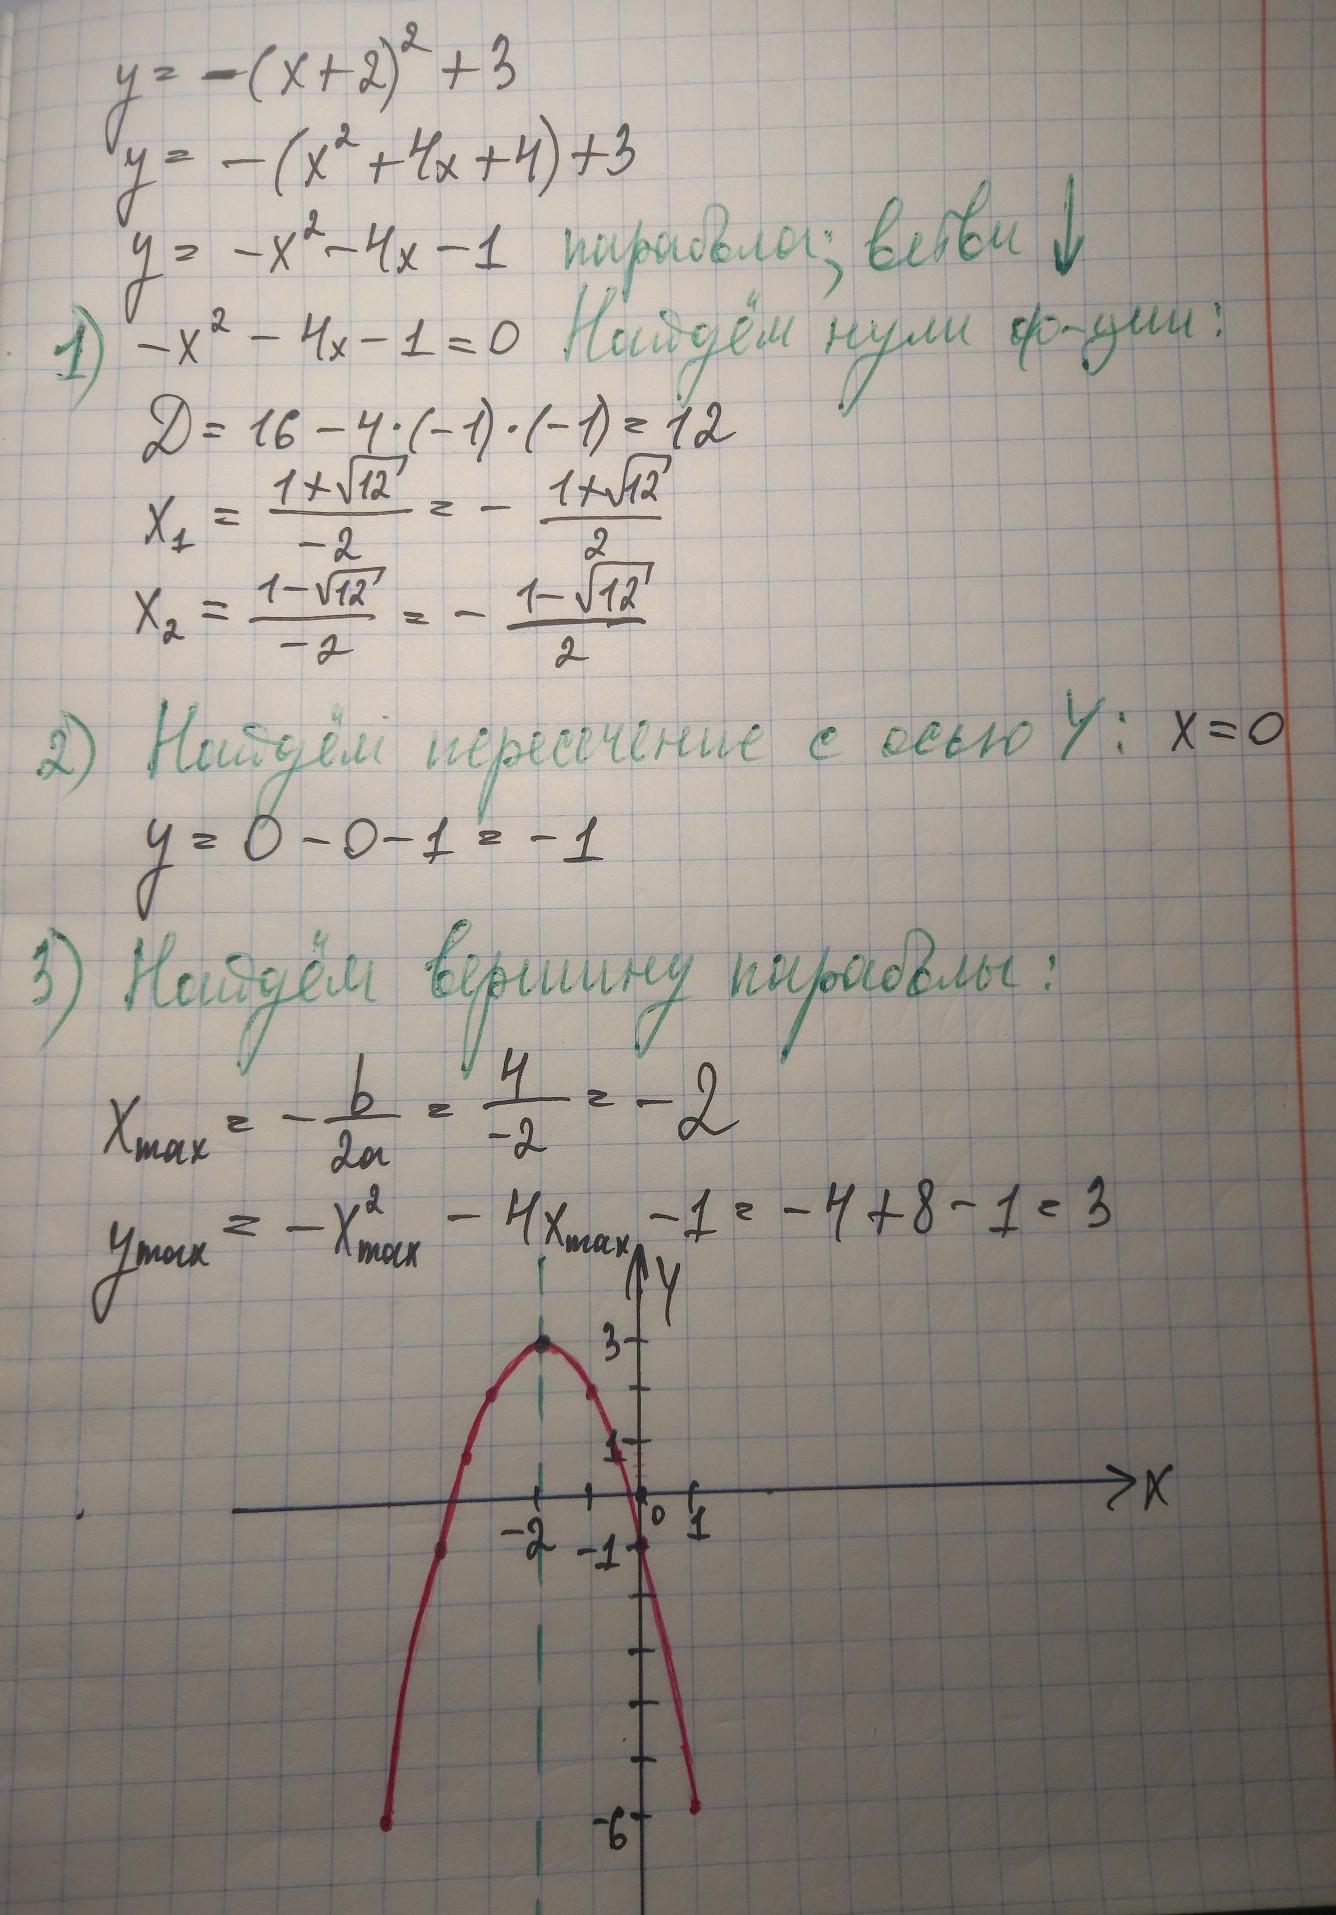 y = -(x+2)² + 3
y = -(x² + 4x + 4) + 3
y = -x² - 4x - 1 парабола; ветви ↓
1) -x² - 4x - 1 = 0 Найдём нули ф-ции:
Д = 16 - 4·(-1)·(-1) = 12
x₁ = (1+√12)/(-2) = - (1+√12)/2
x₂ = (1-√12)/(-2) = - (1-√12)/2
2) Найдём пересечение с осью Y: x = 0
y = 0 - 0 - 1 = -1
3) Найдём вершину параболы:
x_max = - b/(2a) = 4/(-2) = -2
y_max = -x²_max - 4x_max - 1 = -4 + 8 - 1 = 3
Y
3
1
X
-2
0
1
-1
-6